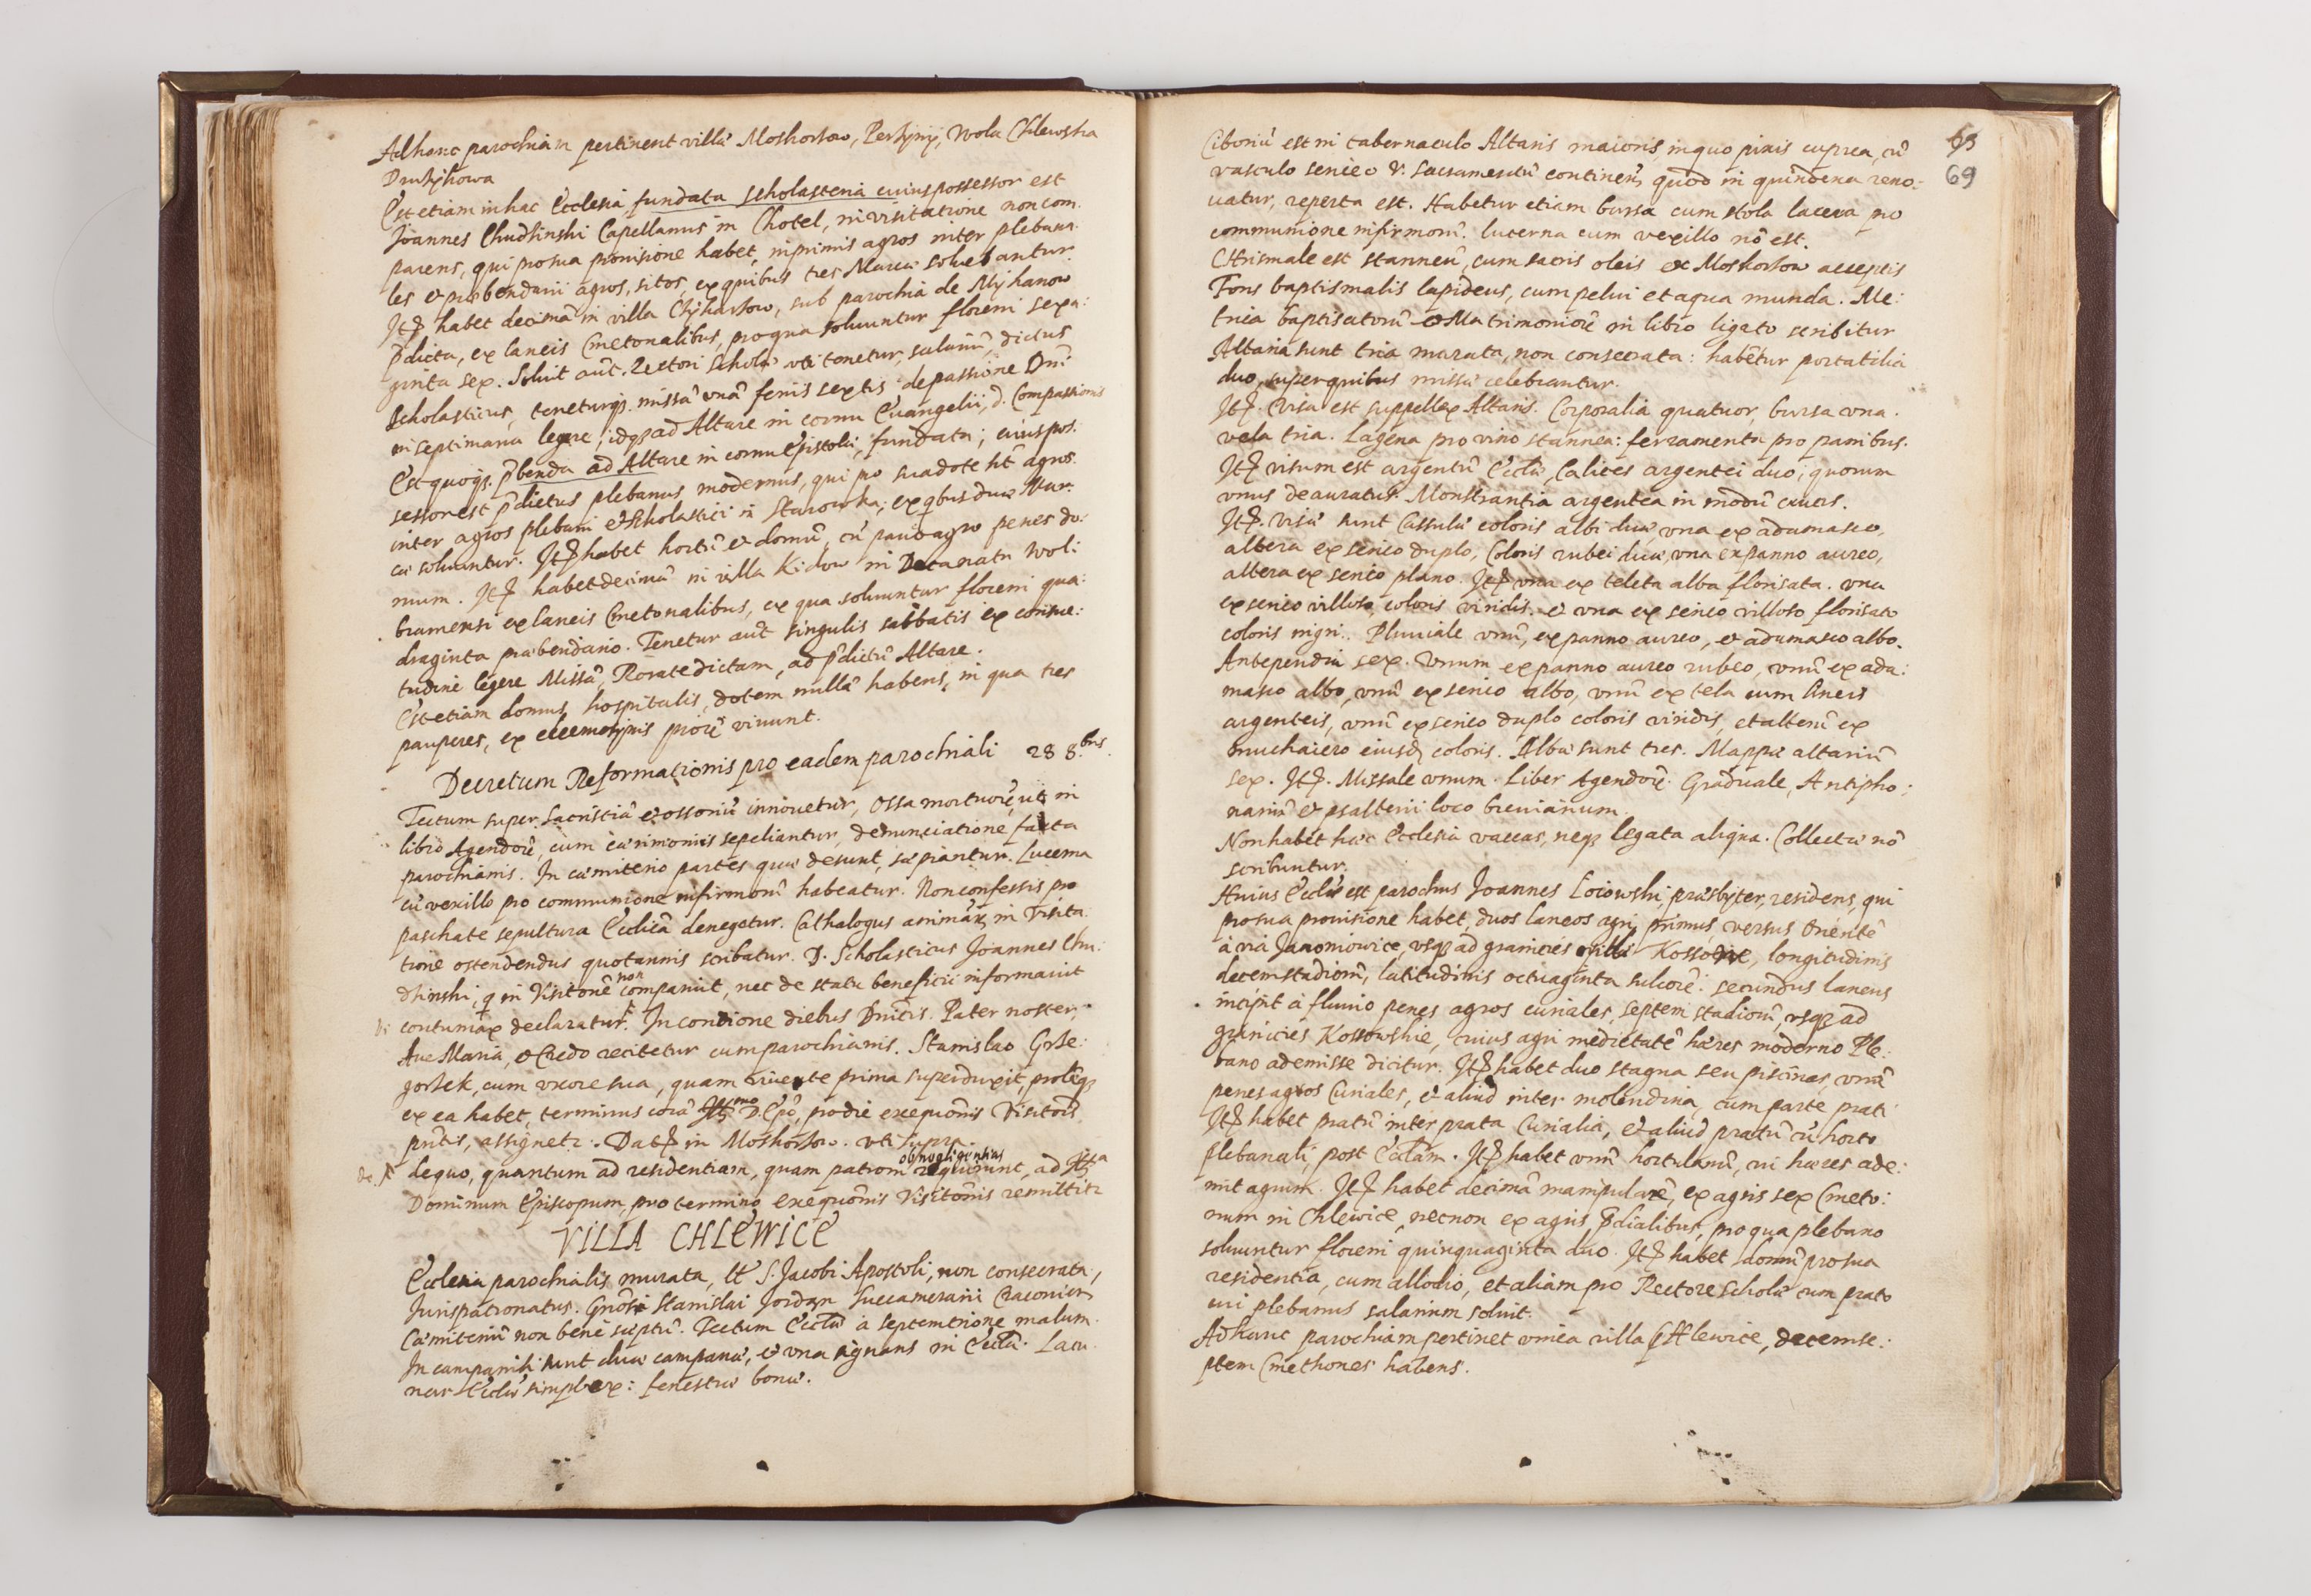 Ad hanc parochiam pertinent villæ Moskorzow, Perzyny, Wola Chlewska
Druzykowa
Est etiam in hac Ecclesia fundata scholasteria cuius possessor est
Joannes Chudzinski Capellanus in Chotel, in visitatione non com:
parens, qui pro sua provisione habet, inprimis agros inter pleban
les et præbendarii agros, sitos, ex quibus tres Marcæ solvebantur.
Itē habet decimā in villa Chyharzow, sub parochia de Myhanow
p̄dicta, ex laneis Cmetonalibus, pro qua solvuntur floreni sexa:
ginta sex. Solvit aūt. Rectori Scholæ uti tenetur, salariū, dictus
Scholasticus, teneturq; missā unā feriis sextis de passione Dnī
in septimana legere, idq; ad Altare in cornu Evangelii, d. Compassionis
Est quoq; p̄benda ad Altare in cornu Epistolæ, fundata; cuius pos:
sessor est p̄dictus plebanus modernus, qui pro sua dote ht̄ agros
inter agros plebani et Scholastici in Starowka; ex qbus duæ Mar:
cæ solvuntur. Itē habet hortū et domū, cū parvo agro penes do:
mum. Itē habet decimā in villa Kidow in Decanatu Woli:
bramensi ex laneis Cmetonalibus, ex qua solvuntur floreni qua:
draginta præbendario. Tenetur aūt singulis sabbatis ex consue:
tudine legere Missā, Rorate dictam, ad p̄dictū Altare.
Est etiam domus hospitalis, dotem nullā habens, in qua tres
pauperes, ex eleemosynis piorū vivunt.
Decretum Reformationis pro eadem parochiali 28 8.bris
Tectum super Sacristiā et ossoriū innovetur, Ossa mortuorū, uti in
libro Agendorū, cum cærimoniis sepeliantur, denunciatione facta
parochianis. In cæmiterio partes quæ desunt, sæpiantur. Lucerna
cū vexillo pro communione infirmorū habeatur. Non confessis pro
paschate sepultura Eccl̄ica denegetur. Cathalogus animarū, in Visita
tione ostendendus quotannis scribatur. D. Scholasticus Joannes Chu:
dzinski, q in Visitōne non comparuit, nec de statu beneficii informavit
contumax declaratur. In concione diebus Dnicis. Pater noster,
Ave Maria, et Credo recitetur cum parochianis. Stanislao Grze:
gorzek, cum uxore sua, quam vivente prima superduxit, prolēq;
ex ea habet, terminus corā Illmo D. Epō, pro die exequōnis Visitōis
pn̄tis, assignetr. Datē in Moskorzow. uti supra.
de quo, quantum ad residentiam, quam patroni ob negligentias requirunt, ad Illm
Dominum Episcopum, pro termino exequōnis Visitōnis remittitr
VILLA CHLEWICE
Ecclesia parochialis murata, tt̄ S. Jacobi Apostoli, non consecrata,
Jurispatronatus. Gnōsi Stanislai Jordan Succamerarii Cracovien
Cæmiteriū non benè sæptū. Tectum Eccl̄æ à septemtrione malum.
In campanili sunt duæ campanæ, et una signans in Eccl̄a. Lacu
nar Eccl̄æ simplex: fenestræ bonæ.
69
Ciboriū est in tabernaculo Altaris maioris, in quo pixis cuprea, cū
vasculo sericeo V. Sacramentū continens, quod in quindena reno:
vatur, reperta est. Habetur etiam bursa cum stola lacera pro
communione infirmorū. lucerna cum vexillo nō est.
Chrismale est stanneū, cum sacris oleis ex Moskorzow acceptis
Fons baptismalis lapideus, cum pelvi et aqua munda. Me:
trica baptisatorū et Matrimoniorū in libro ligato scribitur
Altaria sunt tria murata, non consecrata: habētur portatilia
duo, super quibus missæ celebrantur.
Itē. Visa est suppellex Altaris. Corporalia quatuor, bursa una.
vela tria. Lagena pro vino stannea: ferramenta pro panibus.
Itē visum est argentū Eccl̄æ, Calices argentei duo; quorum
unus deauratus. Monstrantia argentea in modū crucis.
Itē. visæ sunt Casulæ coloris albi duæ, una ex adamasco,
altera ex serico duplo, Coloris rubei duæ, una ex panno aureo,
altera ex serico plano. Itē una ex teleta alba florisata. una
ex serico villoso coloris viridis. et una ex serico villoso florisato
coloris nigri. Pluviale unū, ex panno aureo, et adamasco albo.
Antependia sex. Unum ex panno aureo rubeo, unū ex ada:
masco albo, unū ex serico albo, unū ex tela cum lineis
argenteis, unū ex serico duplo coloris viridis, et alterū ex
muchaiero eiusd coloris. Albæ sunt tres. Mappæ altariū
sex. Itē. Missale unum. Liber Agendorū. Graduale, Antipho:
nariū et psalterii loco breviarium.
Non habet hæc Ecclesia vaccas, neq; legata aliqua. Collectæ nō
scribuntur.
Huius Eccl̄æ est parochus Joannes Lociowski, præsbyter, residens, qui
pro sua provisione habet, duos laneos agri, primus, versus Orientē
à via Janoniowice, usq; ad granicies villæ Kossow, longitudinis
decem stadiorū, latitudinis octuaginta sulcorū: secundus laneus
incipit à fluvio penes agros curiales, septem stadiorū, usq; ad
granicies Kossowskie, cuius agri medietatē hæres moderno Ple:
bano ademisse dicitur. Itē habet duo stagna seu piscinas, unā
penes agros Curiales, et aliud inter molendina, cum parte prati
Itē habet pratū inter prata Curialia, et aliud pratū cū horto
plebanali, post Eccl̄am. Itē habet unū hortulanū, cui hæres ade:
mit agrum. Itē habet decimā manipularē, ex agris sex Cmeto:
num in Chlewice, necnon ex agris p̄dialibus, pro qua plebano
solvuntur floreni quinquaginta duo. Itē habet domū pro sua
residentia, cum allodio, et aliam pro Rectore Scholæ cum prato
cui plebanus salarium solvit.
Ad hanc parochiam pertinet unica villa Chlewice, decemse:
ptem Cmethones habens.